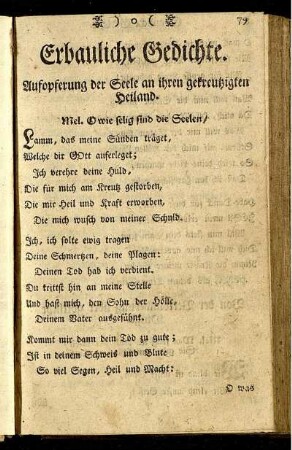 ) o (
79
Erbauliche Gedichte.
Aufopferung der Seele an ihren gekreutzigten
Heiland.
Mel. O wie selig sind die Seelen/
Lamm, das meine Sünden träget,
Welche dir GOtt auferleget;
Ich verehre deine Huld,
Die für mich am Kreutz gestorben,
Die mir Heil und Kraft erworben,
Die mich wusch von meiner Schuld.
Ich, ich solte ewig tragen
Deine Schmertzen, deine Plagen:
Deinen Tod hab ich verdient.
Du trittst hin an meine Stelle
Und hast mich, den Sohn der Hölle,
Deinem Vater ausgesühnt.
Kommt mir dann dein Tod zu gute;
Ist in deinem Schweis und Blute
So viel Segen, Heil und Macht:
O was